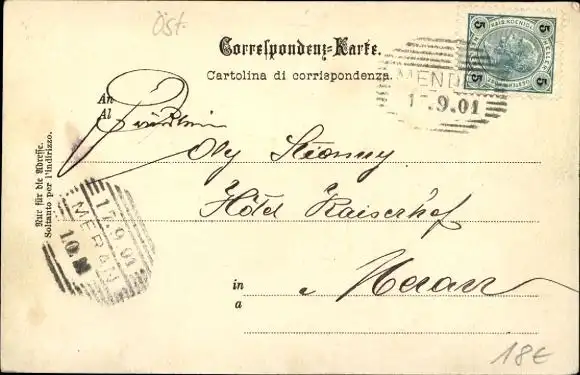 Öst.
Correspondenz-Karte.
Cartolina di corrispondenza.
5 5
5 5
MENDE
17.9.01
An
Al
Fräulein
Oly
Hôtel Kaiserhof
in
a
Meran
Nur für die Adresse.
Soltanto per l'indirizzo.
17.9.01
MERAN
10.
18€